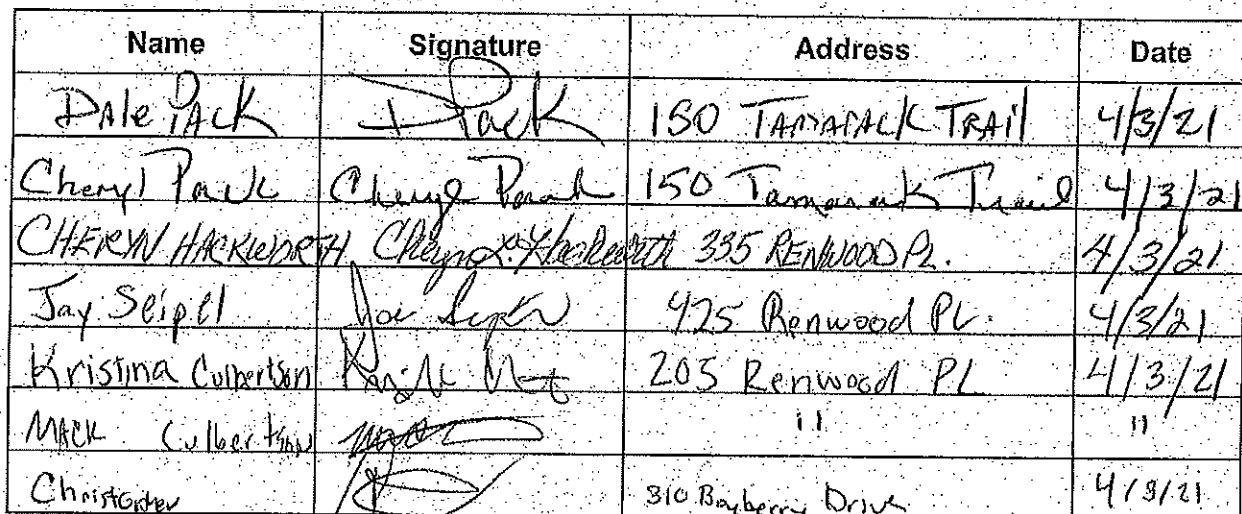 Name Signature Address Date
Dale Pack DPack 150 Tamarack Trail 4/3/21
Cheryl Pack Cheryl Pack 150 Tamarack Trail 4/3/21
CHERYN HACKWORTH Cheryn Hackworth 335 RENWOOD PL. 4/3/21
Jay Seipel 425 Renwood PL. 4/3/21
Kristina Culbertson 205 Renwood PL 4/3/21
MACK Culbertson " "
Christopher 310 Bayberry Drive 4/3/21